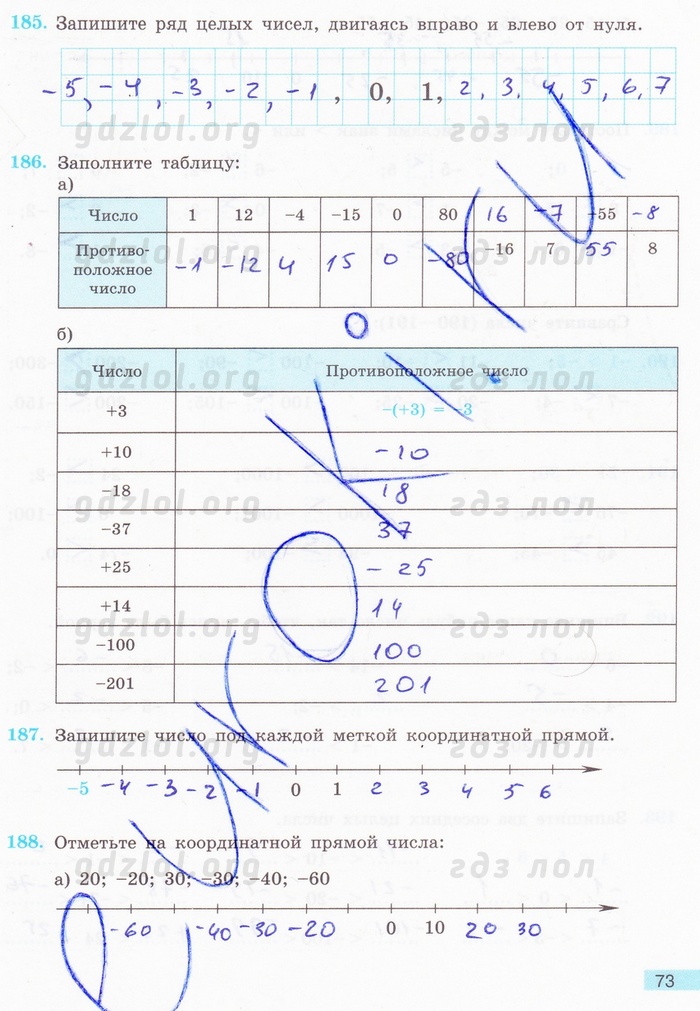 185. Запишите ряд целых чисел, двигаясь вправо и влево от нуля.
-5, -4, -3, -2, -1, 0, 1, 2, 3, 4, 5, 6, 7
gdzlol.org гдз лол
186. Заполните таблицу:
а)
Число 1 12 -4 -15 0 80 16 -7 -55 -8
Противо-
положное
число
-1 -12 4 15 0 -80 -16 7 55 8
gdzlol.org гдз лол
б)
Число Противоположное число
gdzlol.org гдз лол
+3 -(+3) = -3
+10 -10
-18 18
gdzlol.org гдз лол
-37 37
+25 -25
+14 14
gdzlol.org гдз лол
-100 100
-201 201
187. Запишите число под каждой меткой координатной прямой.
gdzlol.org гдз лол
-5 -4 -3 -2 -1 0 1 2 3 4 5 6
188. Отметьте на координатной прямой числа:
gdzlol.org гдз лол
а) 20; -20; 30; -30; -40; -60
-60 -40 -30 -20 0 10 20 30
73